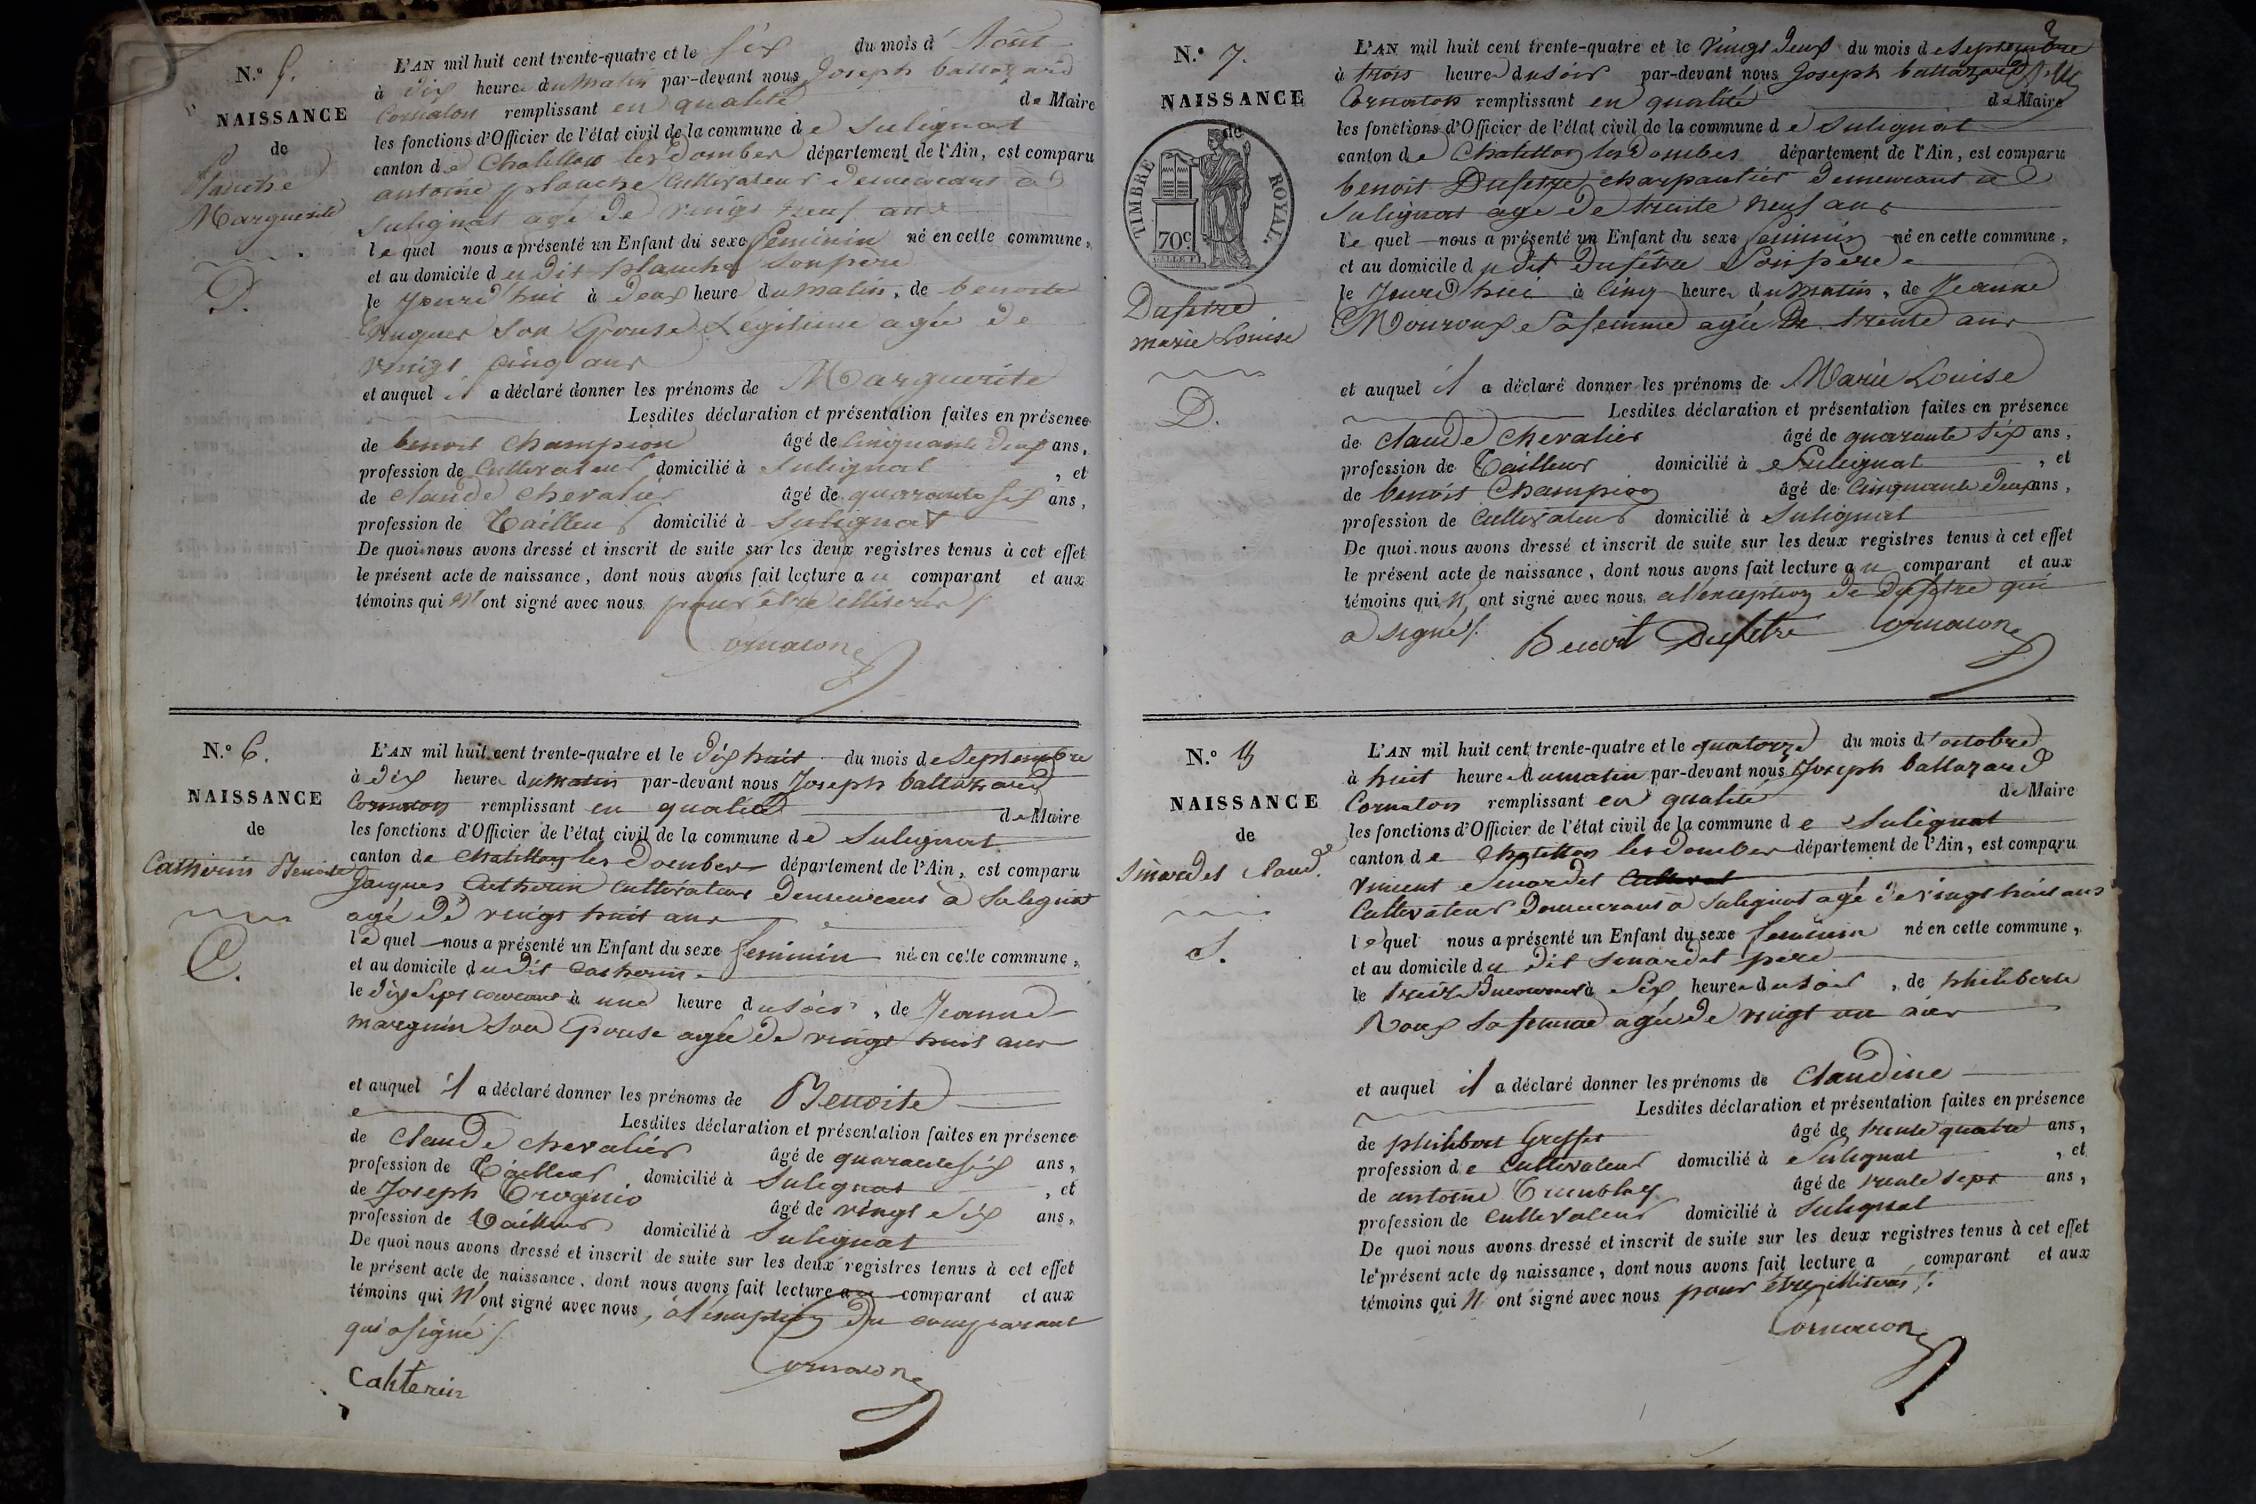 N.º 5.
NAISSANCE
de
Planche
Marguerite
D.
L'AN mil huit cent trente-quatre et le six du mois d'Aout
à dix heure du matin par-devant nous Joseph baltazard
Cornaton remplissant en qualité de Maire
les fonctions d'Officier de l'état civil de la commune de Sulignat
canton de Chatillon les Dombes département de l'Ain, est comparu
antoine planche Cultivateur demeurant a
Sulignat agé de vingt neuf ans
le quel nous a présenté un Enfant du sexe feminin né en cette commune,
et au domicile du dit planche son pere
le jourd'hui à deux heure du matin, de benoite
son Epouse Légitime agée de
vingt cinq ans
et auquel il a déclaré donner les prénoms de Marguerite
Lesdites déclaration et présentation faites en présence
de benoit Champion âgé de Cinquante deux ans,
profession de Cultivateur domicilié à Sulignat, et
de Claude Chevalier âgé de quarante six ans,
profession de Tailleur domicilié à Sulignat
De quoi nous avons dressé et inscrit de suite sur les deux registres tenus à cet effet
le présent acte de naissance, dont nous avons fait lecture au comparant et aux
témoins qui N'ont signé avec nous pour être illiterés
Cornaton
N.º 6.
NAISSANCE
de
Catherin Benoite
C.
L'AN mil huit cent trente-quatre et le dix huit du mois de Septembre
à dix heure du matin par-devant nous Joseph baltazard
Cornaton remplissant en qualité de Maire
les fonctions d'Officier de l'état civil de la commune de Sulignat
canton de Chatillon les Dombes département de l'Ain, est comparu
Jacques Catherin Cultivateur demeurant a Sulignat
agé de vingt huit ans
le quel nous a présenté un Enfant du sexe feminin né en cette commune,
et au domicile du dit Catherin
le dix Sept courant à une heure du soir, de Jeanne
marguin Son Epouse agée de vingt huit ans
et auquel il a déclaré donner les prénoms de Benoite
Lesdites déclaration et présentation faites en présence
de Claude Chevalier âgé de quarante six ans,
profession de Tailleur domicilié à Sulignat, et
de Joseph âgé de vingt Six ans,
profession de Tailleur domicilié à Sulignat
De quoi nous avons dressé et inscrit de suite sur les deux registres tenus à cet effet
le présent acte de naissance, dont nous avons fait lecture au comparant et aux
témoins qui N'ont signé avec nous, a l'exception du comparant
qui a signé
Cahterin Cornaton
N.º 7.
NAISSANCE
de
TIMBRE ROYAL
70c
Dufetre
marie Louise
D.
L'AN mil huit cent trente-quatre et le vingt deux du mois de Septembre
à trois heure du soir par-devant nous Joseph baltazard
Cornaton remplissant en qualité de Maire
les fonctions d'Officier de l'état civil de la commune de Sulignat
canton de Chatillon les Dombes département de l'Ain, est comparu
benoit Dufetre charpantier demeurant a
Sulignat age de trente neuf ans
le quel nous a présenté un Enfant du sexe feminin né en cette commune,
et au domicile du dit Dufêtre Son père
le jourd'hui à Cinq heure du Matin, de Jeanne
Monroux Sa femme agée de trente ans
et auquel il a déclaré donner les prénoms de Marie Louise
Lesdites déclaration et présentation faites en présence
de Claude Chevalier âgé de quarante six ans,
profession de Tailleur domicilié à Sulignat, et
de benoit Champion âgé de Cinquante deux ans,
profession de Cultivateur domicilié à Sulignat
De quoi nous avons dressé et inscrit de suite sur les deux registres tenus à cet effet
le présent acte de naissance, dont nous avons fait lecture au comparant et aux
témoins qui N' ont signé avec nous, a l'exception de Dufetre qui
a signé
Benoit Dufetre Cornaton
N.º 8
NAISSANCE
de
Simardet Claud.
S.
L'AN mil huit cent trente-quatre et le quatorze du mois d'octobre
à huit heure du matin par-devant nous Joseph baltazard
Cornaton remplissant en qualité de Maire
les fonctions d'Officier de l'état civil de la commune de Sulignat
canton de Chatillon les Dombes département de l'Ain, est comparu
Vincent Simardet
Cultivateur demeurant a Sulignat agé de vingt huit ans
le quel nous a présenté un Enfant du sexe feminin né en cette commune,
et au domicile du dit Simardet père
le treize du courant à Six heure du soir, de philiberte
Roux Sa femme agée de vingt un ans
et auquel il a déclaré donner les prénoms de Claudine
Lesdites déclaration et présentation faites en présence
de philibert Greffet âgé de trente quatre ans,
profession de Cultivateur domicilié à Sulignat, et
de antoine Tremblay âgé de trente sept ans,
profession de Cultivateur domicilié à Sulignat
De quoi nous avons dressé et inscrit de suite sur les deux registres tenus à cet effet
le présent acte de naissance, dont nous avons fait lecture a comparant et aux
témoins qui N' ont signé avec nous pour être illiterés
Cornaton